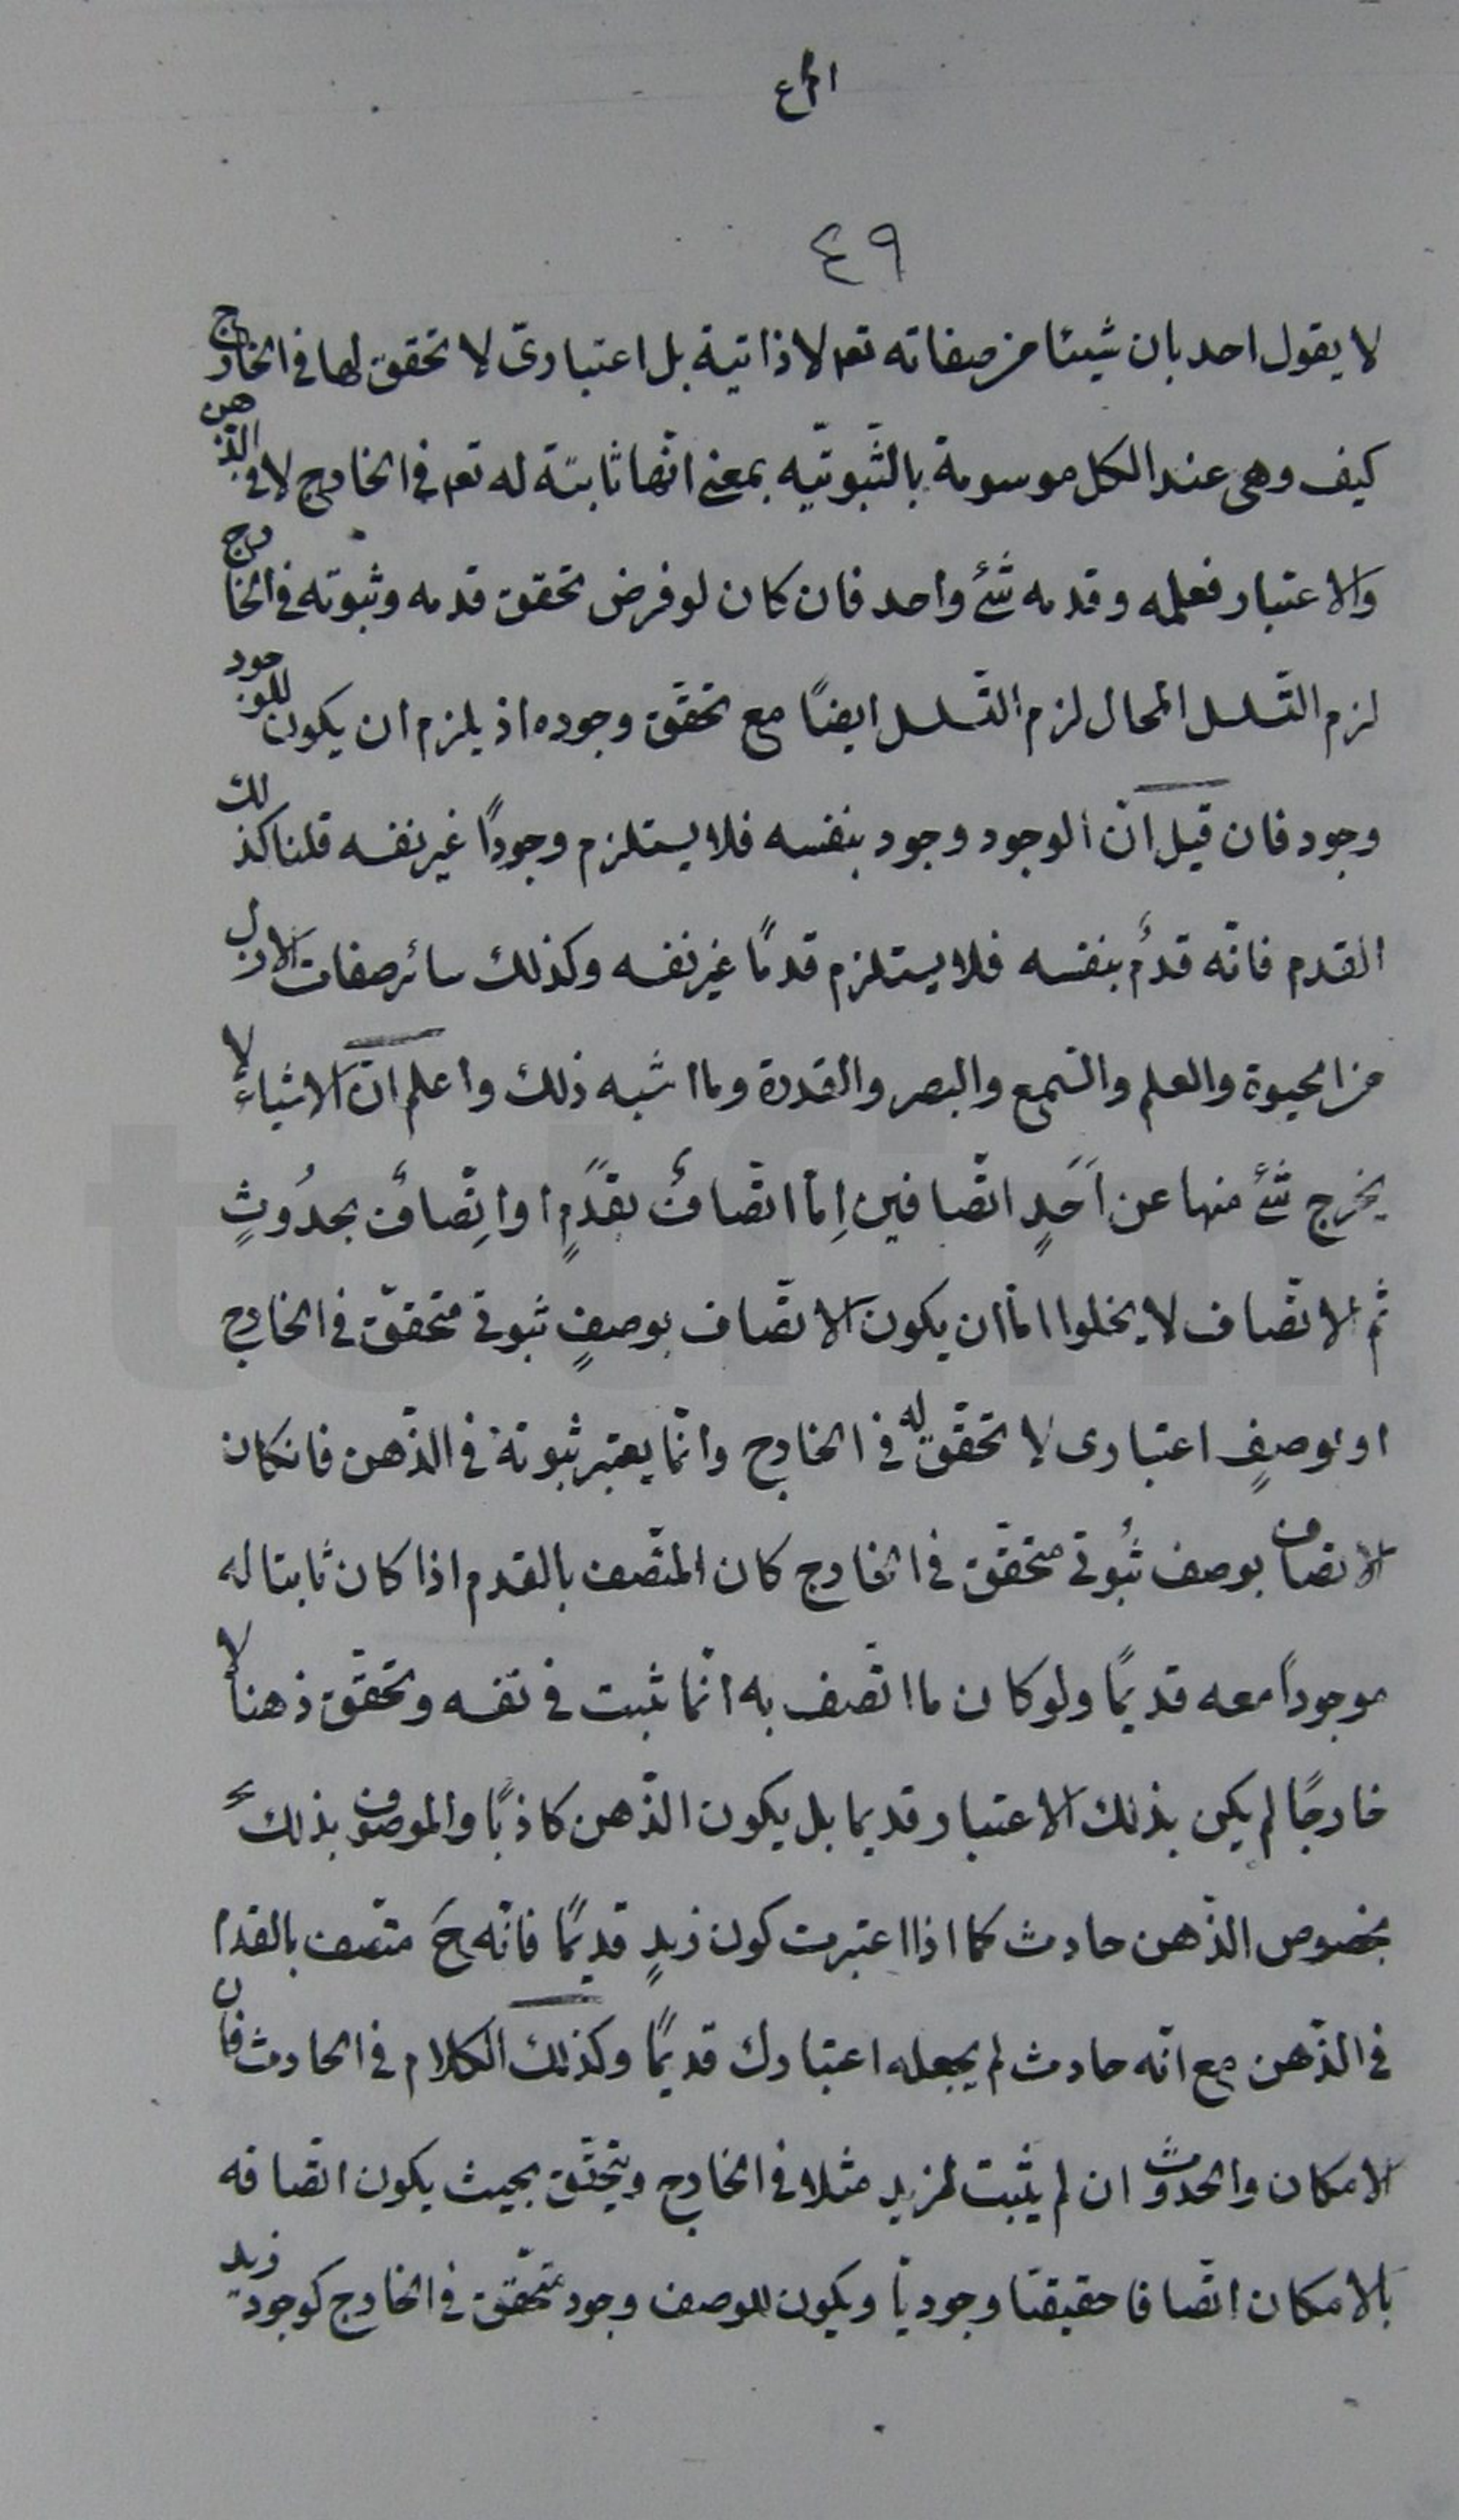 ٤٩
لا يقول احد بان شيئا من صفاته تعہ لا ذاتية بل اعتبارىّ لا تحقق لها فى الخارج
كيف وهى عند الكل موسومة بالثّبوتيّه بمعنى انّها ثابتة له تعہ فى الخارج لا فى الذهن
والاعتبار فعلمه وقدمه شئ واحد فان كان لو فرض تحقق قدمه وثبوته فى الخارج
لزم التّسلسل المحال لزم التّسلسل ايضًا مع تحقّق وجوده اذ يلزم ان يكون للوجود
وجود فان قيل انّ الوجود وجود بنفسه فلا يستلزم وجودًا غير نفسه قلنا كذلك
القدم فانّه قدمٌ بنفسه فلا يستلزم قدمًا غير نفسه وكذلك سائر صفات الازل
من الحيوة والعلم والسّمع والبصر والقدرة وما اشبه ذلك واعلم انّ الاشياء لا
يخرج شئ منها عن اَحَدٍ اتّصافين اِمّا اتّصافٌ بقَدَمٍ او اِتّصافٌ بحدُوثٍ
ثم الاتّصاف لا يخلوا امّا ان يكون الاتّصاف بوصفٍ ثبوتى متحقّق فى الخارج
او بوصفٍ اعتبارى لا تحقّق له فى الخارج وانّما يعتبر ثبوته فى الذّهن فانكان
الاتصاف بوصف ثبُوتى متحقّق فى الخارج كان المتّصف بالقدم اذا كان ثابتا له
موجوداً معه قديمًا ولو كان ما اتّصف به انّما ثبت فى نفسه وتحقّق ذهناً لا
خارجًا لم يكن بذلك الاعتبار قديما بل يكون الذّهن كاذبًا والموصوف بذلك
بخصوص الذّهن حادث كما اذا اعتبرت كون زيدٍ قديمًا فانّه حَ متّصف بالقدم
فى الذّهن مع انّه حادث لم يجعله اعتبارك قديمًا وكذلك الكلام فى الحادث فان
الامكان والحدوث ان لم يثبت لزيد مثلا فى الخارج ويتحقّق بحيث يكون اتّصافه
بالامكان اتّصافا حقيقتا وجوديّا ويكون للوصف وجود متحقّق فى الخارج كوجود زيد